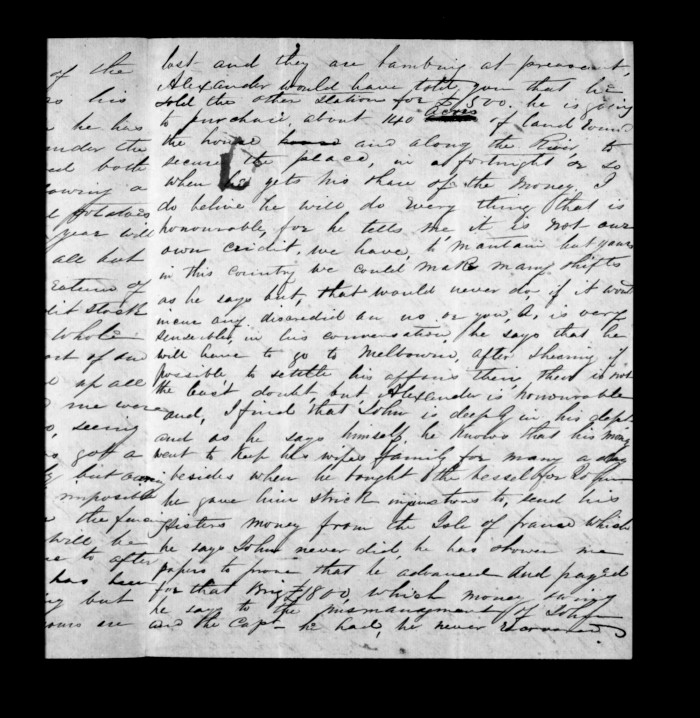 of the
his
he has
under the
both
a
potatoes
year will
all but
stock
whole
up all
me were
seeing
gott a
but
imposible
the
will be
to after
has been
but
yours are
lost and they are lambing at preasent,
Alexander would have told you that he
sold the other station for £1,500. he is going
to purchace, about 140 acres of land round
the house and along the River, to
secure the place, in a fortnight or so
when he gets his share of the money, I
do belive he will do every thing that is
honourable, for he tells me, it is not our
own credit, we have, to mantain but yours
in this country we could make many shifts
as he says but, that would never do, if it
any discredid on us, or you, A, is very
sensible, in his conversation, he says that he
will have to go to Melbourn, after shearing if
possible, to settle his affairs there, there is not
the least doubt, but Alexander is honourable
and, I find that John is deeply in his dept
and as he says himself, he knows that his mony
went to keep his wifes family for many a day
besides when he bought the vessel for
he gave him strick injunctions to, send his
sisters money from the Isle of france which
he says John never did, he has shown me
papers to prove that he advanced and payed
for that Brig £1800, which money
he says to the mismanagment of John
and the Capt. he had, he never